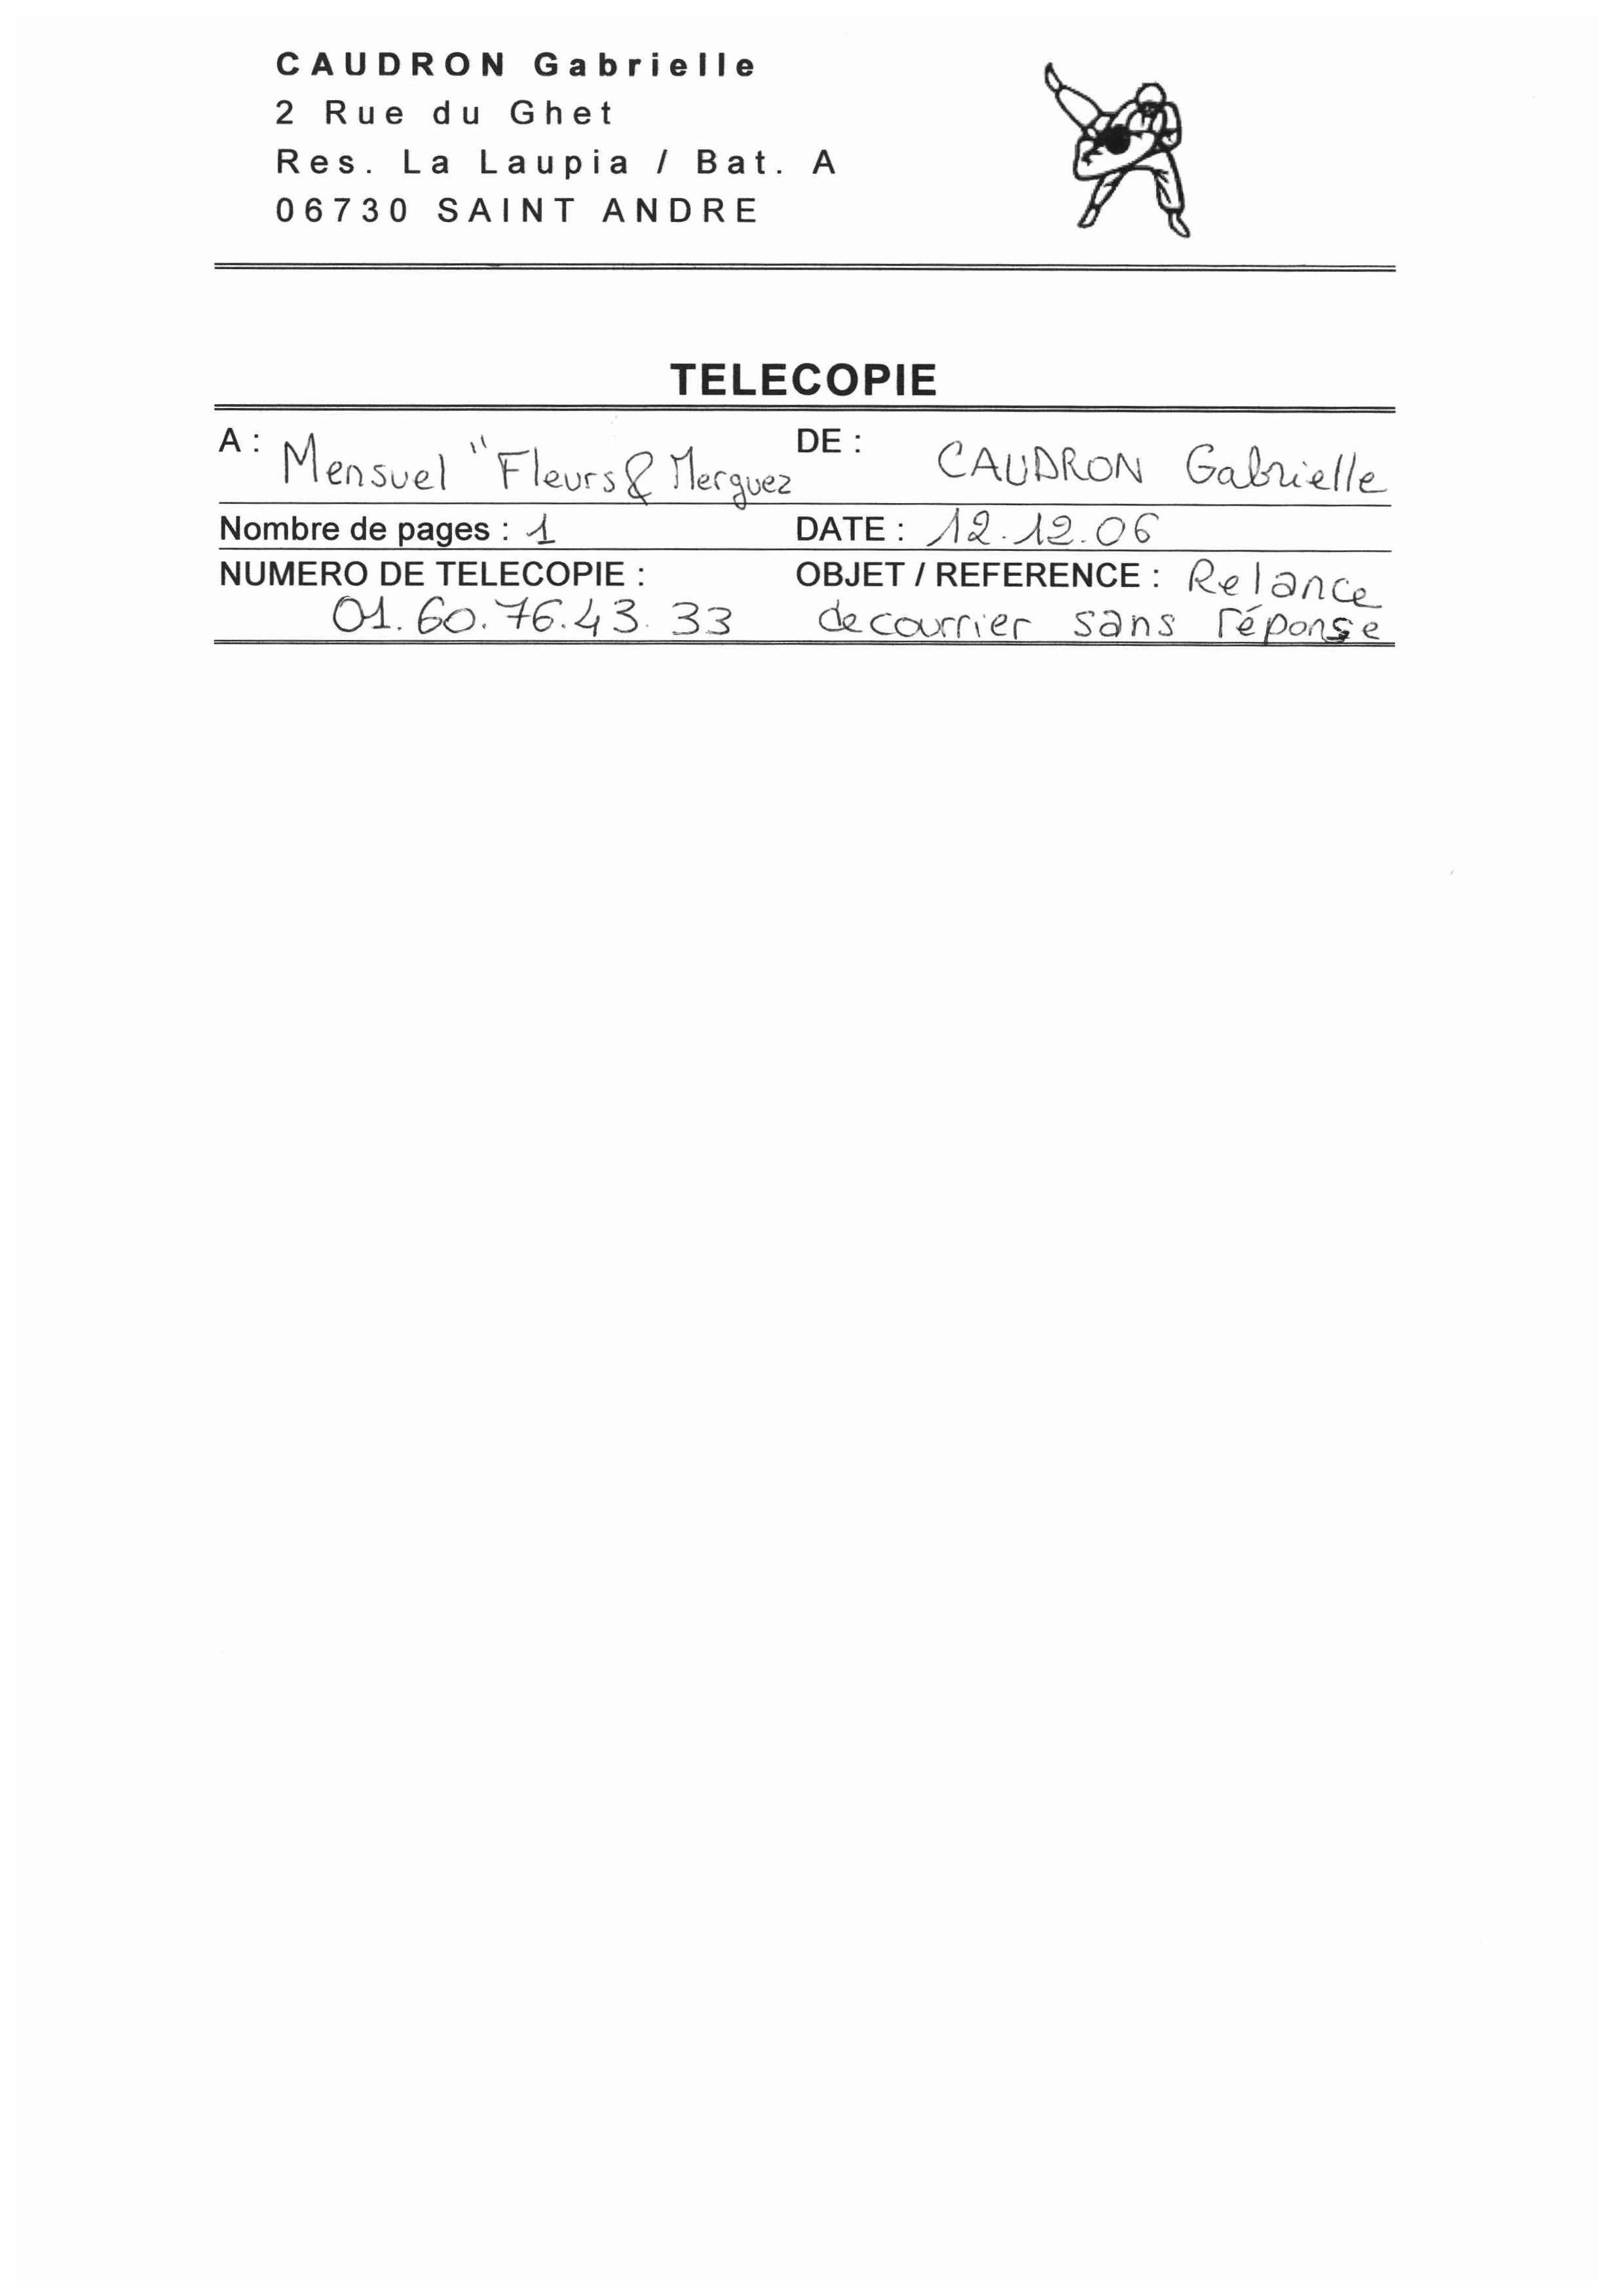 CAUDRON Gabrielle
2 Rue du Ghet
Res. La Laupia / Bat. A
06730 SAINT ANDRE
TELECOPIE
A : Mensuel "Fleurs & Merguez
DE : CAUDRON Gabrielle
Nombre de pages : 1
DATE : 12.12.06
NUMERO DE TELECOPIE :
01.60.76.43.33
OBJET / REFERENCE : Relance
de courrier sans réponse